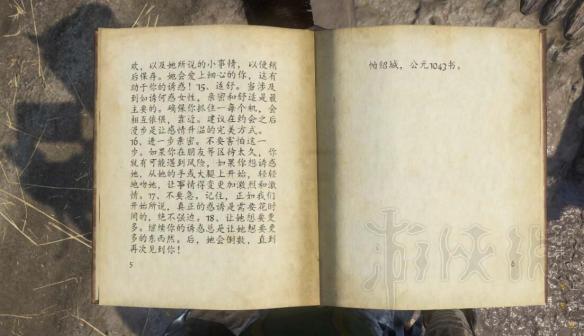 欢，以及她所说的小事情，以便稍
后保存。她会爱上细心的你，这有
助于你的诱惑！15、连舒。当涉及
到如诱何惑女性，亲密和舒适是最
主要的。确保你抓住一每个机，会
相互依偎，靠近。建议在约会之后
漫步是让感情升温的完美方式。
16、进一步亲密。不要害怕这一
步。如果你在朋友等区待太久，你
就有可能遇到风险，如果你想诱惑
她，从她的手或大腿上开始，轻轻
地吻她，让事情得变更加激烈和激
情。17、不要急。记住，正如我们
开始所说，真正的惑诱是需要花时
间的，绝不强迫。18、让她想要更
多。继续你的诱惑总是让她想要更
多的东西然。后，她会倒数，直到
再次见到你！
5
怕绍城，公元1043书。
6
游侠